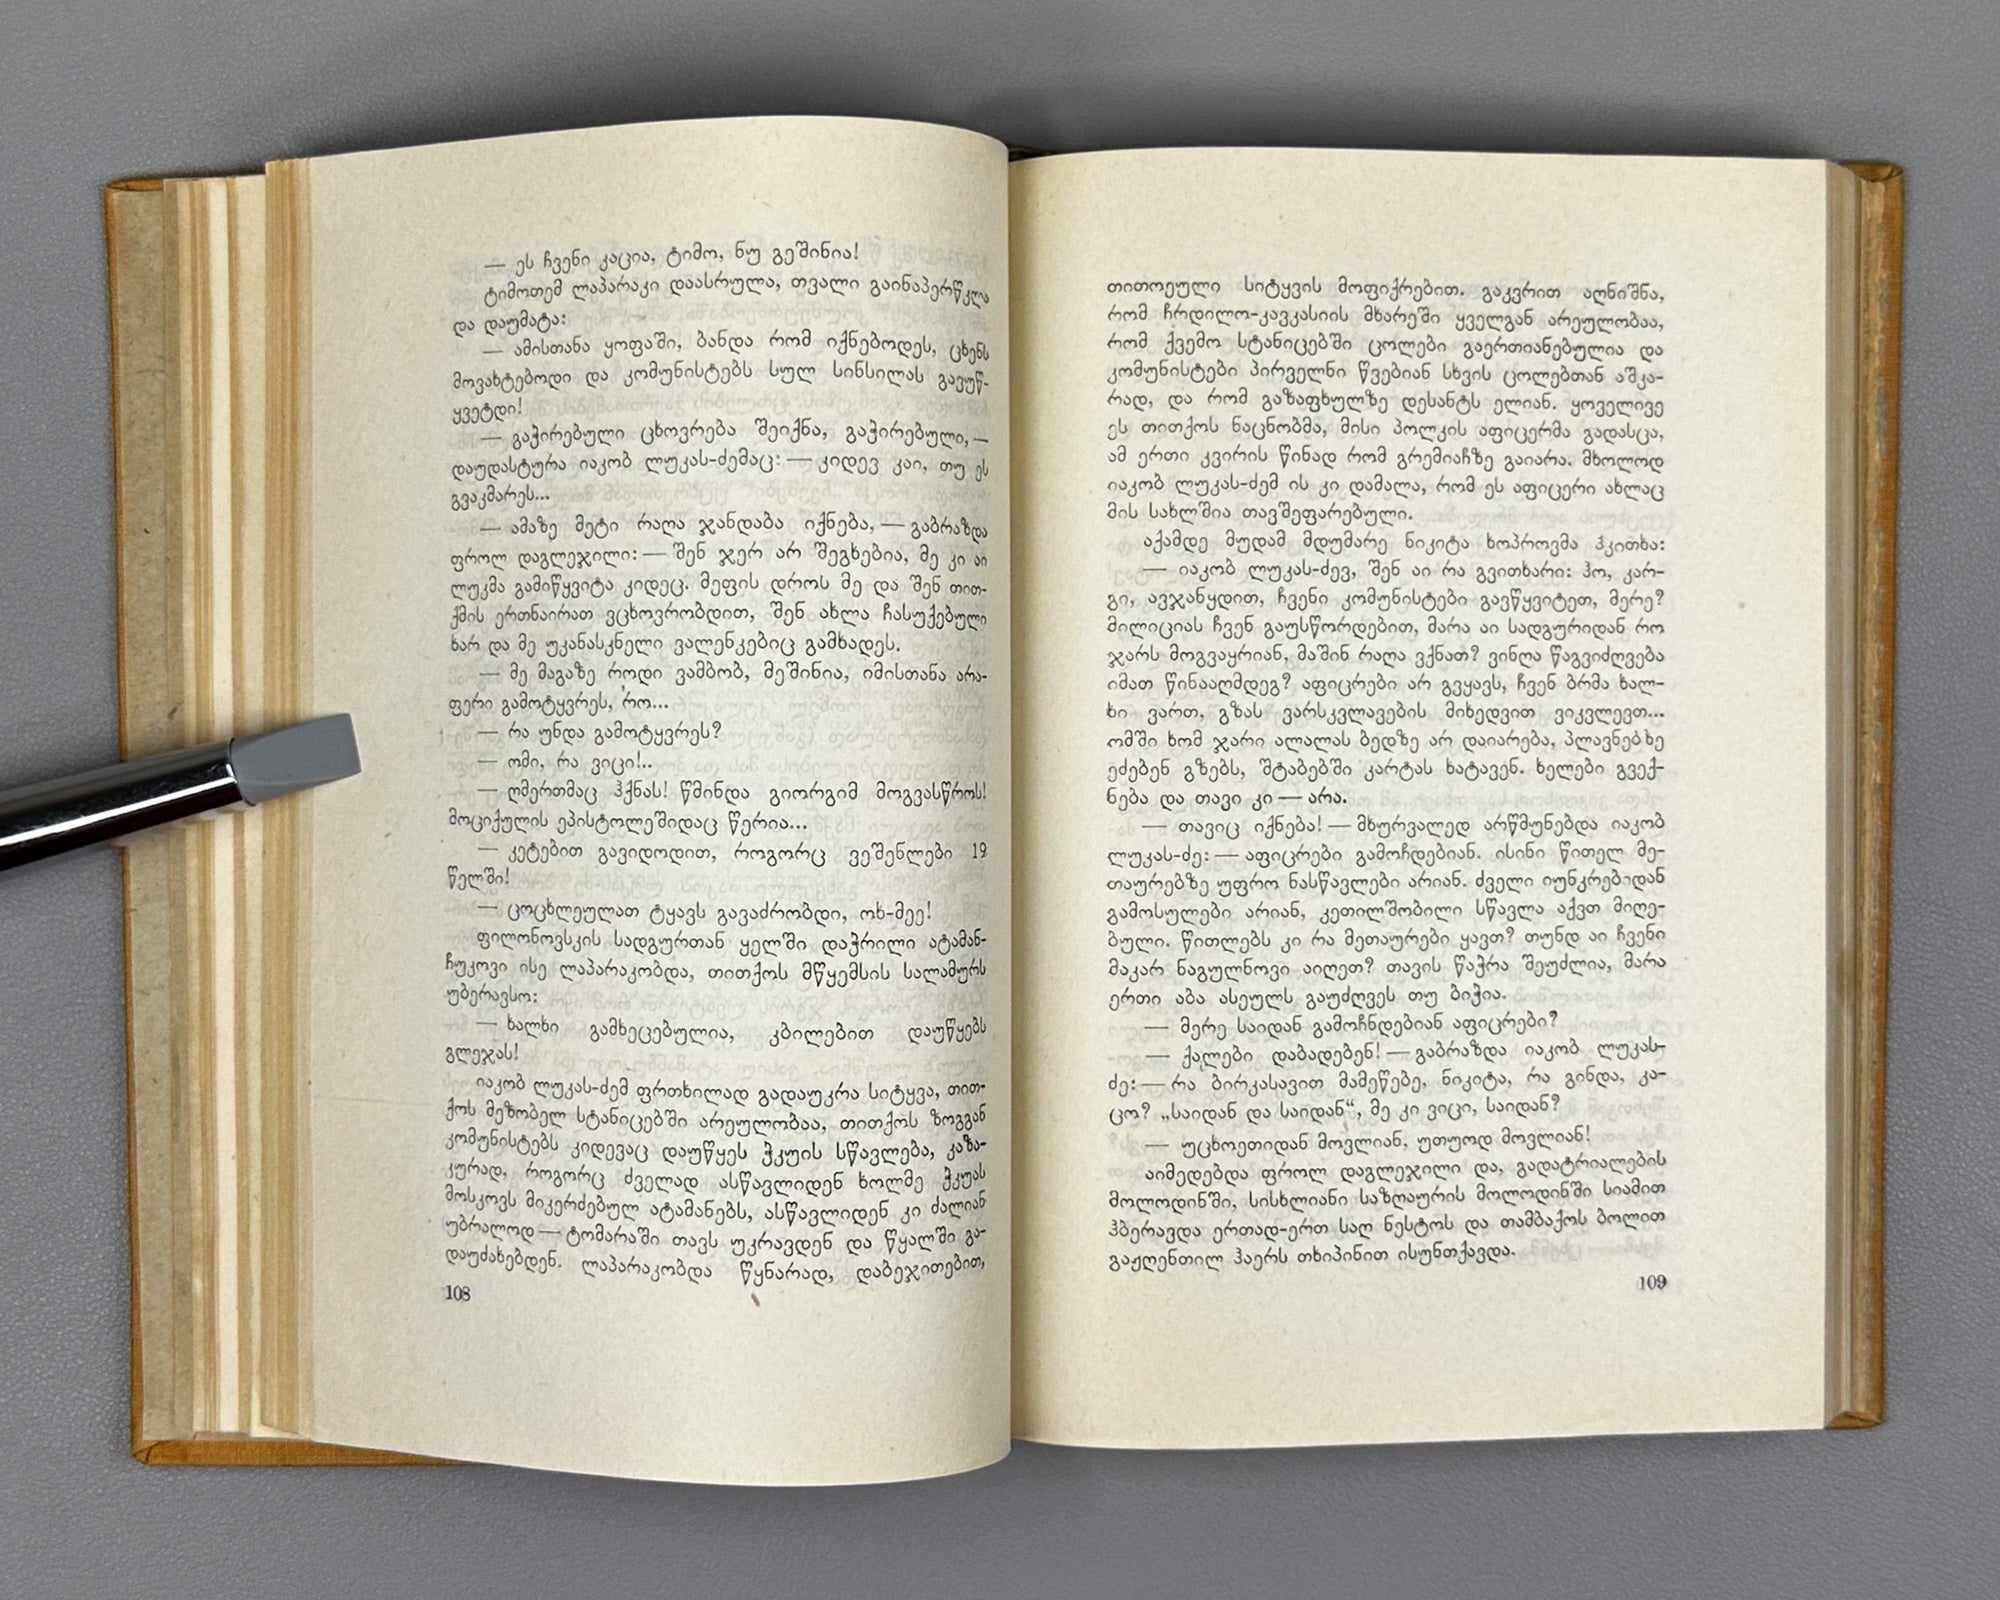 — ეს ჩვენი კაცია, ტიმო, ნუ გეშინია!
ტიმოთემ ლაპარაკი დაასრულა, თვალი გაინაპერწკლა
და დაუმატა:
— ამისთანა ყოფაში, ბანდა რომ იქნებოდეს, ცხენს
მოვახტებოდი და კომუნისტებს სულ სინსილას გავუწ-
ყვეტდი!
— გაჭირებული ცხოვრება შეიქნა, გაჭირებული, —
დაუდასტურა იაკობ ლუკას-ძემაც: — კიდევ კაი, თუ ეს
გვაკმარეს...
— ამაზე მეტი რაღა ჯანდაბა იქნება, — გაბრაზდა
ფროლ დაგლეჯილი: — შენ ჯერ არ შეგხებია, მე კი აი
ლუკმა გამიწყვიტა კიდეც. მეფის დროს მე და შენ თით-
ქმის ერთნაირათ ვცხოვრობდით, შენ ახლა ჩასუქებული
ხარ და მე უკანასკნელი ვალენკებიც გამხადეს.
— მე მაგაზე როდი ვამბობ, მეშინია, იმისთანა არა-
ფერი გამოტყვრეს, რო...
— რა უნდა გამოტყვრეს?
— ომი, რა ვიცი!..
— ღმერთმაც ჰქნას! წმინდა გიორგიმ მოგვასწროს!
მოციქულის ეპისტოლეშიდაც წერია...
— კეტებით გავიდოდით, როგორც ვეშენლები 19
წელში!
— ცოცხლეულათ ტყავს გავაძრობდი, ოხ-მეე!
ფილონოვსკის სადგურთან ყელში დაჭრილი ატამან-
ჩუკოვი ისე ლაპარაკობდა, თითქოს მწყემსის სალამურს
უბერავსო:
— ხალხი გამხეცებულია, კბილებით დაუწყებს
გლეჯას!
იაკობ ლუკას-ძემ ფრთხილად გადაუკრა სიტყვა, თით-
ქოს მეზობელ სტანიცებში არეულობაა, თითქოს ზოგგან
კომუნისტებს კიდევაც დაუწყეს ჭკუის სწავლება, კაზა-
კურად, როგორც ძველად ასწავლიდენ ხოლმე ჭკუას
მოსკოვს მიკერძებულ ატამანებს, ასწავლიდენ კი ძალიან
უბრალოდ — ტომარაში თავს უკრავდენ და წყალში გა-
დაუძახებდენ. ლაპარაკობდა წყნარად, დაბეჯითებით,
108
თითოეული სიტყვის მოფიქრებით. გაკვრით აღნიშნა,
რომ ჩრდილო-კავკასიის მხარეში ყველგან არეულობაა,
რომ ქვემო სტანიცებში ცოლები გაერთიანებულია და
კომუნისტები პირველნი წვებიან სხვის ცოლებთან აშკა-
რად, და რომ გაზაფხულზე დესანტს ელიან. ყოველივე
ეს თითქოს ნაცნობმა, მისი პოლკის აფიცერმა გადასცა,
ამ ერთი კვირის წინად რომ გრემიაჩზე გაიარა. მხოლოდ
იაკობ ლუკას-ძემ ის კი დამალა, რომ ეს აფიცერი ახლაც
მის სახლშია თავშეფარებული.
აქამდე მუდამ მდუმარე ნიკიტა ხოპროვმა ჰკითხა:
— იაკობ ლუკას-ძევ, შენ აი რა გვითხარი: ჰო, კარ-
გი, ავჯანყდით, ჩვენი კომუნისტები გავწყვიტეთ, მერე?
მილიციას ჩვენ გაუსწორდებით, მარა აი სადგურიდან რო
ჯარს მოგვაყრიან, მაშინ რაღა ვქნათ? ვინღა წაგვიძღვება
იმათ წინააღმდეგ? აფიცრები არ გვყავს, ჩვენ ბრმა ხალ-
ხი ვართ, გზას ვარსკვლავების მიხედვით ვიკვლევთ...
ომში ხომ ჯარი ალალას ბედზე არ დაიარება, პლავნებხე
ეძებენ გზებს, შტაბებში კარტას ხატავენ. ხელები გვექ-
ნება და თავი კი — არა.
— თავიც იქნება! — მხურვალედ არწმუნებდა იაკობ
ლუკას-ძე: — აფიცრები გამოჩდებიან. ისინი წითელ მე-
თაურებზე უფრო ნასწავლები არიან. ძველი იუნკრებიდან
გამოსულები არიან, კეთილშობილი სწავლა აქვთ მიღე-
ბული. წითლებს კი რა მეთაურები ყავთ? თუნდ აი ჩვენი
მაკარ ნაგულნოვი აიღეთ? თავის წაჭრა შეუძლია, მარა
ერთი აბა ასეულს გაუძღვეს თუ ბიჭია.
— მერე საიდან გამოჩნდებიან აფიცრები?
— ქალები დაბადებენ! — გაბრაზდა იაკობ ლუკას-
ძე: — რა ბირკასავით მამეწებე, ნიკიტა, რა გინდა, კა-
ცო? „საიდან და საიდან“, მე კი ვიცი, საიდან?
— უცხოეთიდან მოვლიან, უთუოდ მოვლიან!
აიმედებდა ფროლ დაგლეჯილი და, გადატრიალების
მოლოდინში, სისხლიანი საზღაურის მოლოდინში სიამით
ჰბერავდა ერთად-ერთ საღ ნესტოს და თამბაქოს ბოლით
გაჟღენთილ ჰაერს თხიპინით ისუნთქავდა.
109